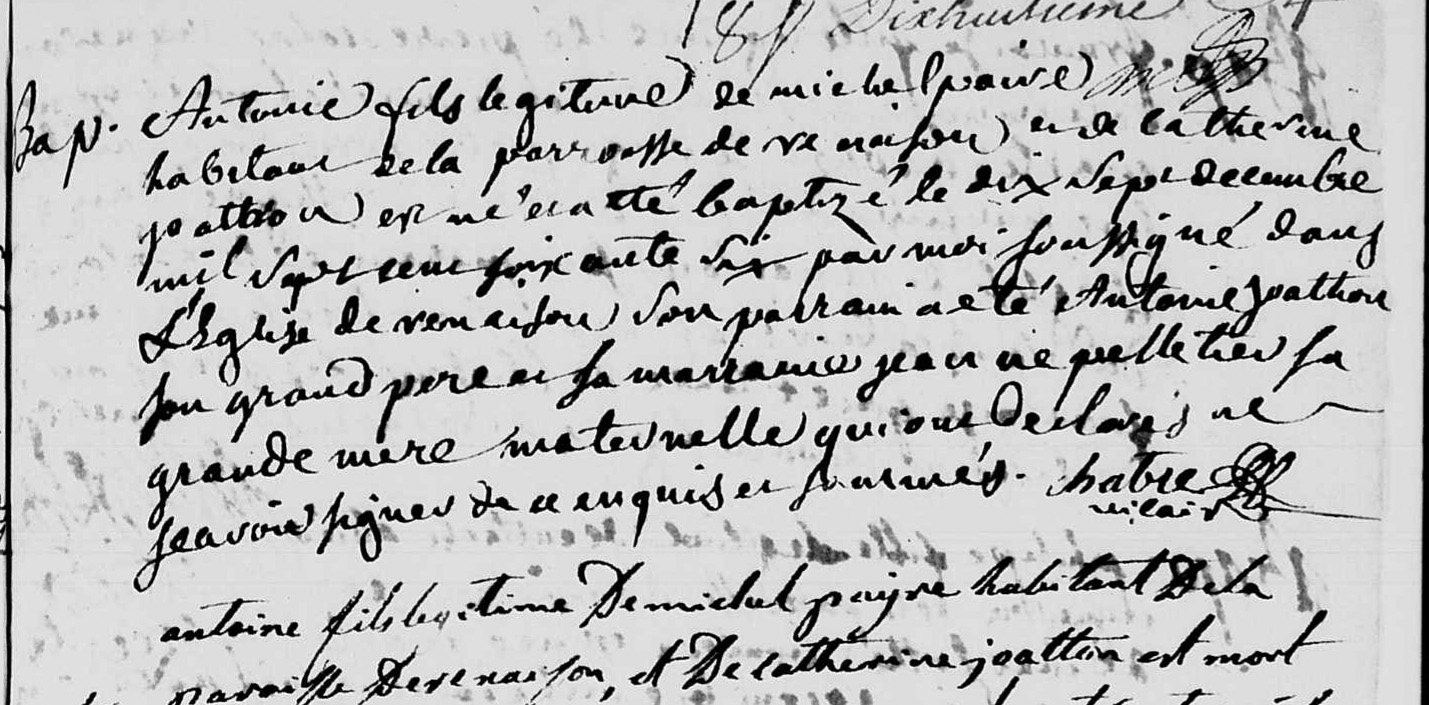 Dixhuitieme
Bap. Antoine fils legitime de michel paire
habitant de la parroisse de renaison et de Catherine
joathon est né et a eté baptizé le dix sept decembre
mil sept cent soixante six par moi soussigné dans
L'Eglise de renaison son parrain a eté Antoine joathon
son grand pere et sa marraine jeanne pelletier sa
grande mere maternelle qui ont declarés ne
scavoir signer de ce enquis et sommés. chatre
vicaire
antoine fils legitime De michel payre habitant De la
paroisse De renaison, et De catherine joatton est mort